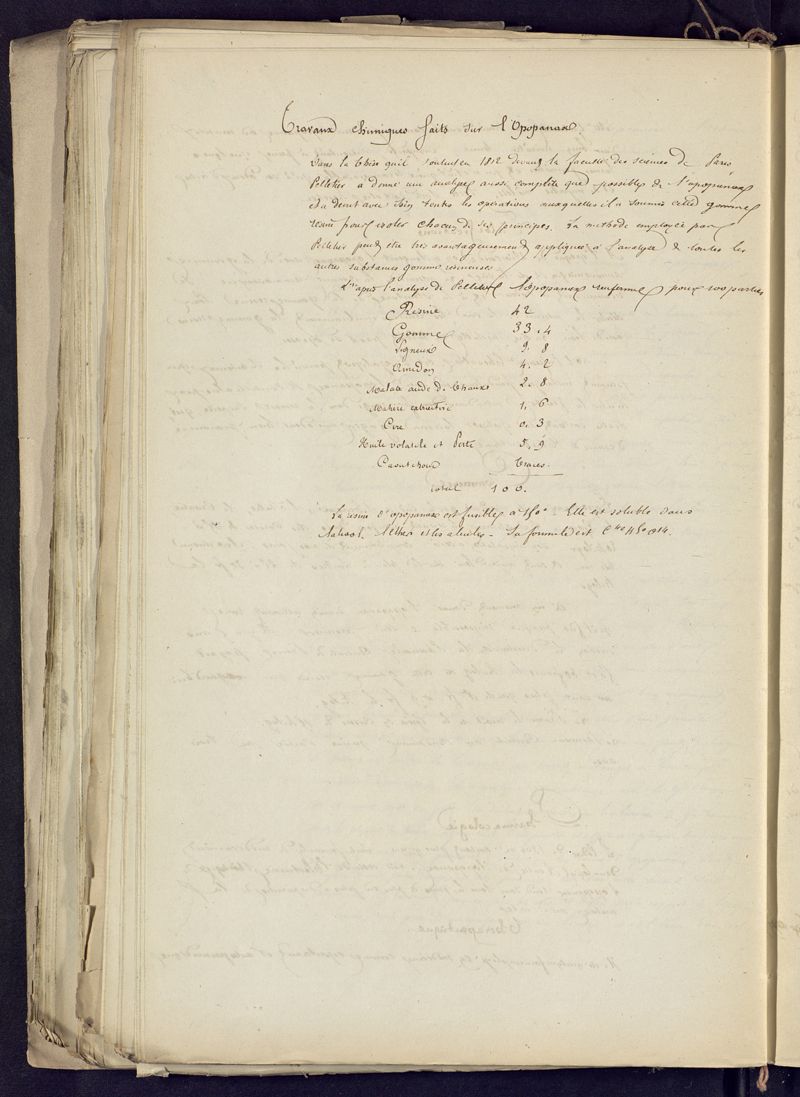 Travaux chimiques faits sur l'Opopanax
Dans la thèse qu'il soutenu en 1812 devant la faculté des sciences de Paris
Pelletier a donné une analyse aussi complète que possible de l'opopanax
et a décrit avec soin toutes les opérations auxquelles il a soumis cette gomme
résine pour isoler chacun de ses principes. La méthode employée par
Pelletier peut être très avantageusement appliquée à l'analyse de toutes les
autres substances gommo résineuses
D'après l'analyse de Pelletier l'opopanax renferme pour 100 parties
Résine 42
Gomme 33.4
Ligneux 9.8
Amidon 4.2
Malate acide de chaux 2.8
Matière extractive 1.6
Cire 0.3
Huile volatile et Perte 5.9
Caoutchouc traces.
total 100.
La résine d'opopanax est fusible à 150°. Elle est soluble dans
l'alcool, l'éther et les alcalis. Sa formule est C40 H50 O14.